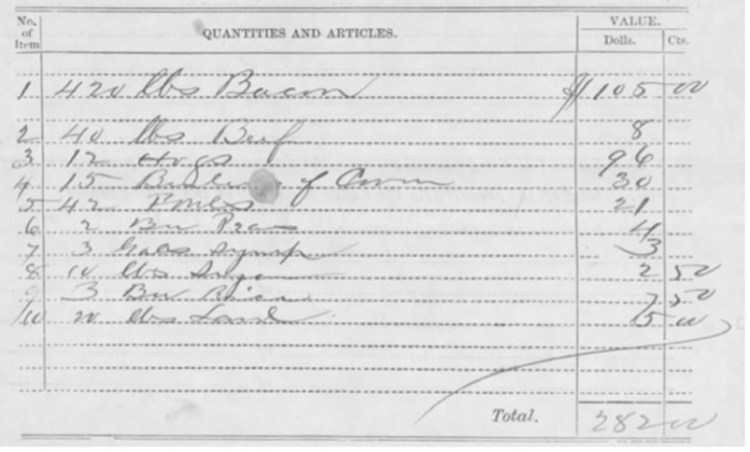 No. of Item QUANTITIES AND ARTICLES. VALUE. Dolls. Cts.
1 420 lbs Bacon $105 00
2 40 lbs Beef 8
3 12 Hogs 96
4 15 Bushels of Corn 30
5 42 Fowls 21
6 2 Bu Peas 4
7 3 Gals Syrup 3
8 10 lbs Sugar 2 50
9 3 Bu Rice 7 50
10 20 lbs Lard 5 00
Total. 282 00